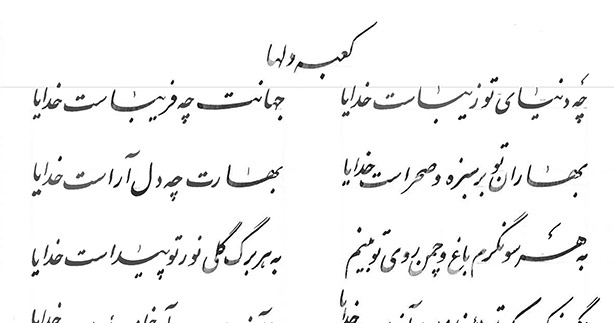 کعبه دلها
چه دنیای تو زیباست خدایا جهانت چه فریباست خدایا
بهاران تو بر سبزه و صحراست خدایا بهارت چه دل آراست خدایا
به هر سو نگرم باغ و چمن روی تو بینم به هر برگ گلی نور تو پیداست خدایا
خدایا خدایا